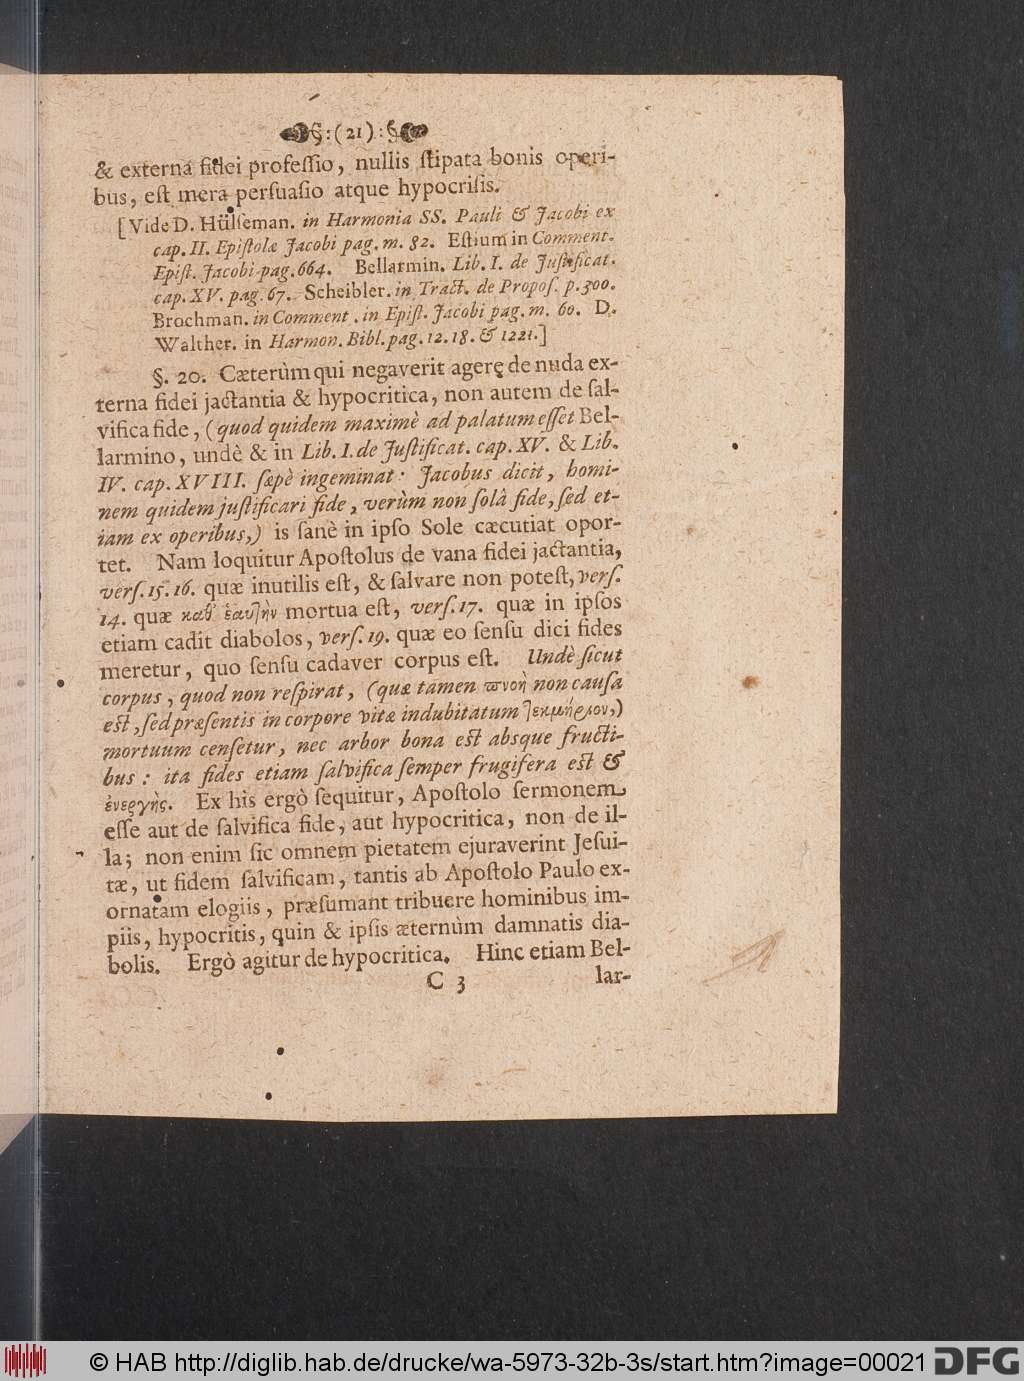 §:(21):§
& externa fidei professio, nullis stipata bonis operi-
bus, est mera persuasio atque hypocrisis.
[Vide D. Hülseman. in Harmonia SS. Pauli & Jacobi ex
cap. II. Epistolæ Jacobi pag. m. 82. Estium in Comment.
Epist. Jacobi pag. 664. Bellarmin. Lib. I. de Justificat.
cap. XV. pag. 67. Scheibler. in Tract. de Propos. p. 300.
Brochman. in Comment. in Epist. Jacobi pag. m. 60. D.
Walther. in Harmon. Bibl. pag. 12. 18. & 1221.]
§. 20. Cæterùm qui negaverit agere de nuda ex-
terna fidei jactantia & hypocritica, non autem de sal-
vifica fide, (quod quidem maximè ad palatum esset Bel-
larmino, undè & in Lib. I. de Justificat. cap. XV. & Lib.
IV. cap. XVIII. sæpè ingeminat: Jacobus dicit, homi-
nem quidem justificari fide, verùm non solâ fide, sed et-
iam ex operibus,) is sanè in ipso Sole cæcutiat opor-
tet. Nam loquitur Apostolus de vana fidei jactantia,
vers. 15. 16. quæ inutilis est, & salvare non potest, vers.
14. quæ καθ' ἑαυτὴν mortua est, vers. 17. quæ in ipsos
etiam cadit diabolos, vers. 19. quæ eo sensu dici fides
meretur, quo sensu cadaver corpus est. Undè sicut
corpus, quod non respirat, (quæ tamen πνοὴ non causa
est, sed præsentis in corpore vitæ indubitatum τεκμήριον,)
mortuum censetur, nec arbor bona est absque fructi-
bus: ita fides etiam salvifica semper frugifera est &
ἐνεργὴς. Ex his ergò sequitur, Apostolo sermonem
esse aut de salvifica fide, aut hypocritica, non de il-
la; non enim sic omnem pietatem ejuraverint Jesui-
tæ, ut fidem salvificam, tantis ab Apostolo Paulo ex-
ornatam elogiis, præsumant tribuere hominibus im-
piis, hypocritis, quin & ipsis æternùm damnatis dia-
bolis. Ergò agitur de hypocritica. Hinc etiam Bel-
C 3 lar-
© HAB http://diglib.hab.de/drucke/wa-5973-32b-3s/start.htm?image=00021 DFG